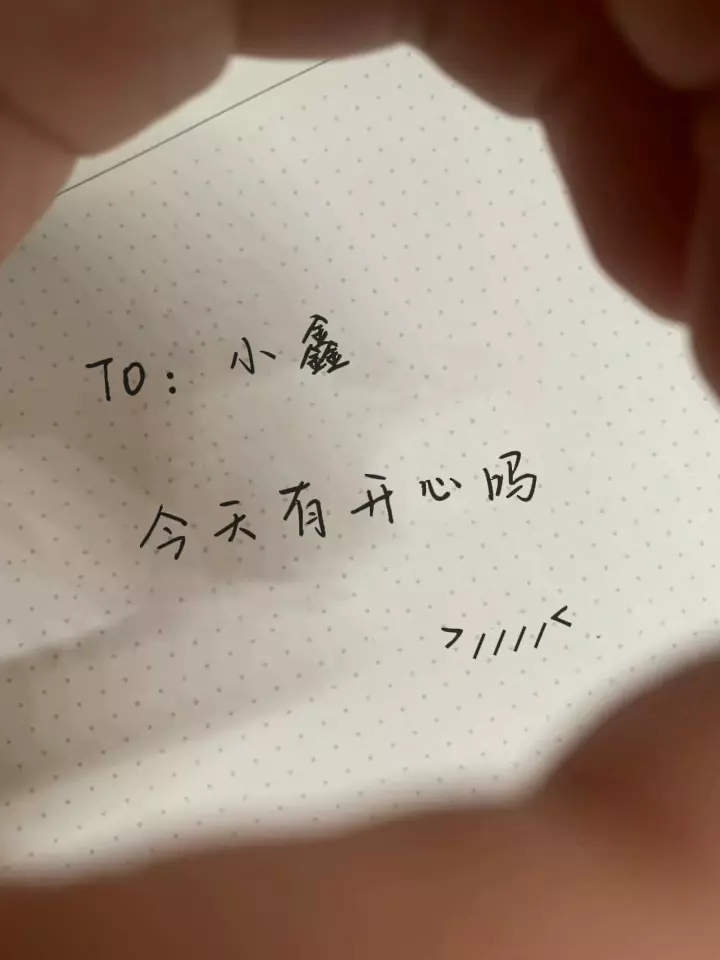 TO: 小鑫
今天有开心吗
>////<